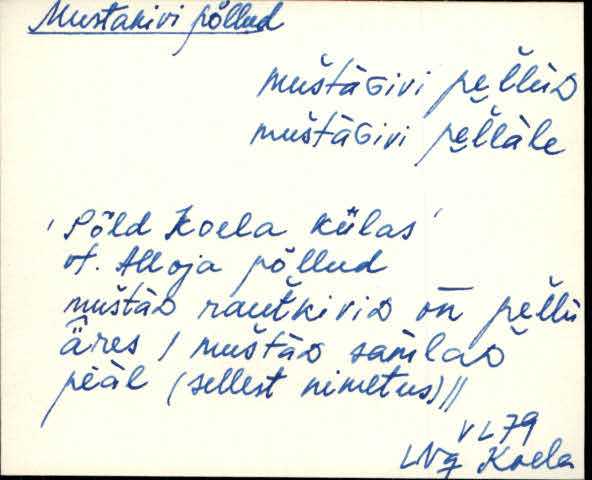 Mustakivi põllud
muštàGivi pe̮l̆lüD
muštàGivi pe̮l̆làle
'Põld Koela külas'
vt. Alloja põllud
muštàD rautkiviD on pe̮l̆lü
äres / muštàD samlaD
pèäl (sellest nimetus) //
VL79
LNg Koela